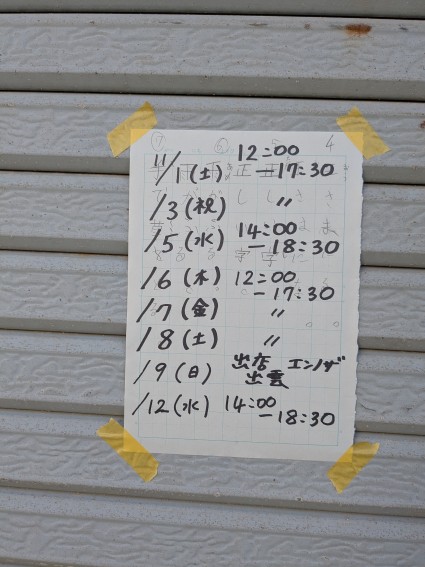 11/1(土) 12:00
-17:30
/3(祝) 〃
/5(水) 14:00
-18:30
/6(木) 12:00
-17:30
/7(金) 〃
/8(土) 〃
/9(日) 出店 エンノザ
出雲
/12(水) 14:00
-18:30